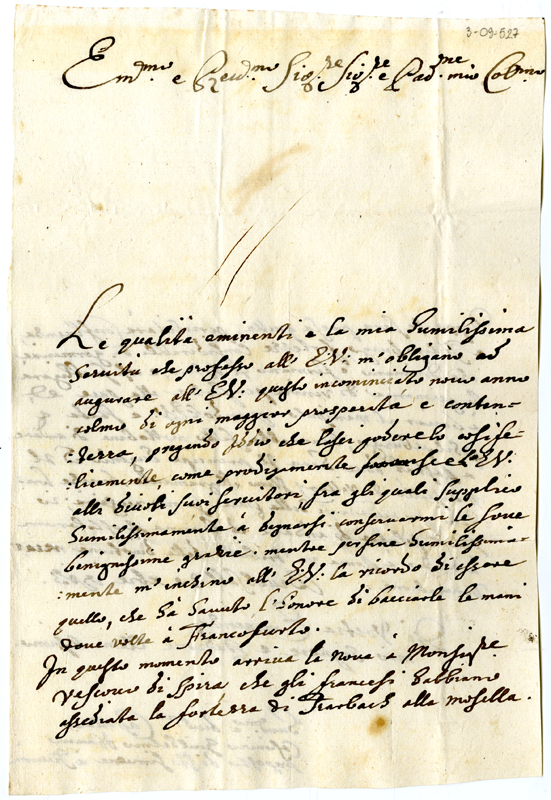 3-09-527
Em.mo e Rev.mo Sig.re Sig.re e Pad.ne mio Col.mo
Le qualità eminenti e la mia humilissima
servitù che professo all' E.V: m'obligano ad
augurare all' E.V: questo incominciato novo anno
colmo di ogni maggior prosperità e conten-
:tezza, pregando Iddio che lasci goderelo cosi fe-
:licemente, come prodigamente E.V.
alli divoti suoi servitori, fra gli quali supplico
humilissimamente à degnarsi conservarmi le sove
benignissime grazie. mentre per fine humilissima-
:mente m'inchino all' E.V. la ricordo di essere
quello, che hà havuto l'honore di bacciarle le mani
dove volte à Francofurto.
In questo momento arriva la nova à Monsig.re
Vescovo di Spira che gli francesi habbiano
assediata la fortezza di Trarbach alla mosella.